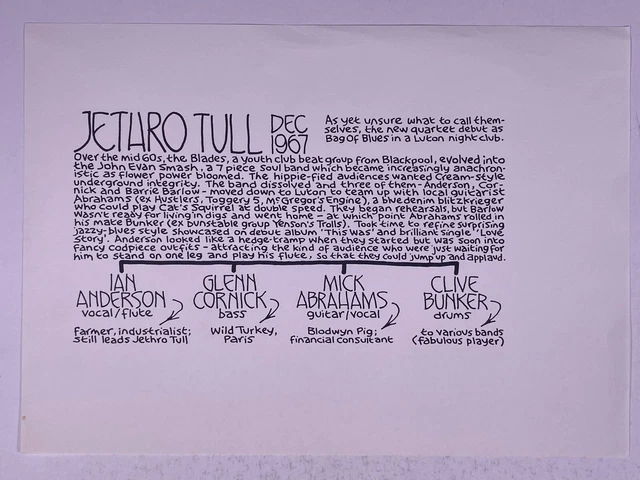 JETHRO TULL DEC 1967
As yet unsure what to call them-
selves, the new quartet debut as
Bag Of Blues in a Luton night club.
Over the mid 60s, the Blades, a youth club beat group from Blackpool, evolved into
the John Evan Smash, a 7 piece soul band which became increasingly anachron-
istic as flower power bloomed. The hippie-fied audiences wanted Cream-style
underground integrity. The band dissolved and three of them - Anderson, Cor-
nick and Barrie Barlow - moved down to Luton to team up with local guitarist
Abrahams (ex Hustlers, Toggery 5, McGregor's Engine), a blue denim blitzkrieger
who could play Cat's Squirrel at double speed. They began rehearsals, but Barlow
wasn't ready for living in digs and went home - at which point Abrahams rolled in
his mate Bunker (ex Dunstable group Yenson's Trolls). Took time to refine surprising
jazzy-blues style showcased on debut album 'This Was' and brilliant single 'Love
Story'. Anderson looked like a hedge-tramp when they started but was soon into
fancy codpiece outfits - attracting the kind of audience who were just waiting for
him to stand on one leg and play his flute, so that they could jump up and applaud.
IAN
ANDERSON
vocal/flute
Farmer, industrialist;
still leads Jethro Tull
GLENN
CORNICK
bass
Wild Turkey,
Paris
MICK
ABRAHAMS
guitar/vocal
Blodwyn Pig;
financial consultant
CLIVE
BUNKER
drums
to various bands
(fabulous player)